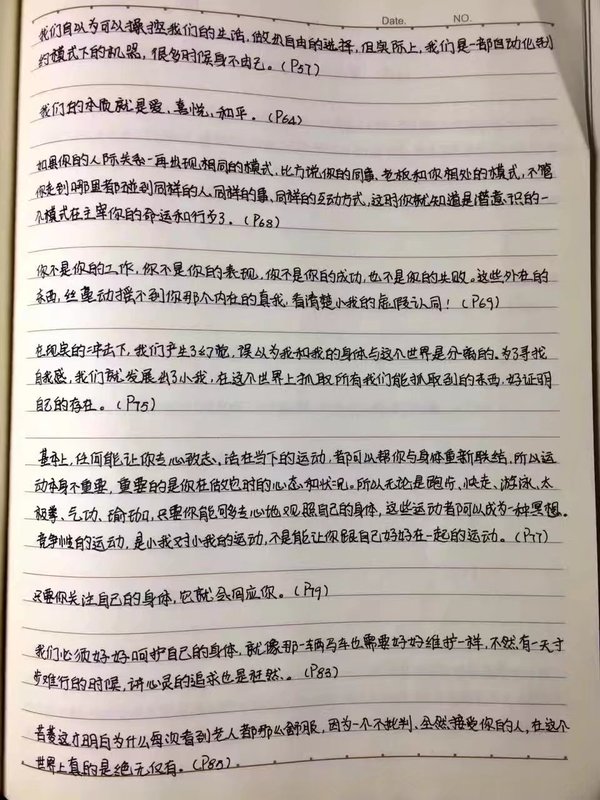 Date.
NO.
我们自以为可以操控我们的生活,做出自由的选择,但实际上,我们是一部自动化制
约模式下的机器,很多时候身不由己。(P37)
我们的本质就是爱、喜悦、和平。(P64)
如果你的人际关系一再出现相同的模式,比方说你的同事、老板和你相处的模式,不管
你走到哪里都碰到同样的人、同样的事、同样的互动方式,这时你就知道是潜意识的一
个模式在主宰你的命运和行为了。(P68)
你不是你的工作,你不是你的表现,你不是你的成功,也不是你的失败。这些外在的
东西,丝毫动摇不到你那个内在的真我,看清楚小我的虚假认同!(P69)
在现实的冲击下,我们产生了幻觉,误以为我和我的身体与这个世界是分离的。为了寻找
自我感,我们就发展出了小我,在这个世界上抓取所有我们能抓取到的东西,好证明
自己的存在。(P75)
基本上,任何能让你专心致志,活在当下的运动,都可以帮你与身体重新联结,所以运
动本身不重要,重要的是你在做它时的心态和状况。所以无论是跑步、快走、游泳、太
极拳、气功、瑜珈,只要你能够专心地观照自己的身体,这些运动都可以成为一种冥想。
竞争性的运动,是小我对小我的运动,不是能让你跟自己好好在一起的运动。(P77)
只要你关注自己的身体,它就会回应你。(P79)
我们必须好好呵护自己的身体,就像那一辆马车也需要好好维护一样,不然有一天寸
步难行的时候,讲心灵的追求也是枉然、。(P83)
若菱这才明白为什么每次看到老人都那么舒服,因为一个不批判、全然接受你的人,在这个
世界上真的是绝无仅有。(P85)